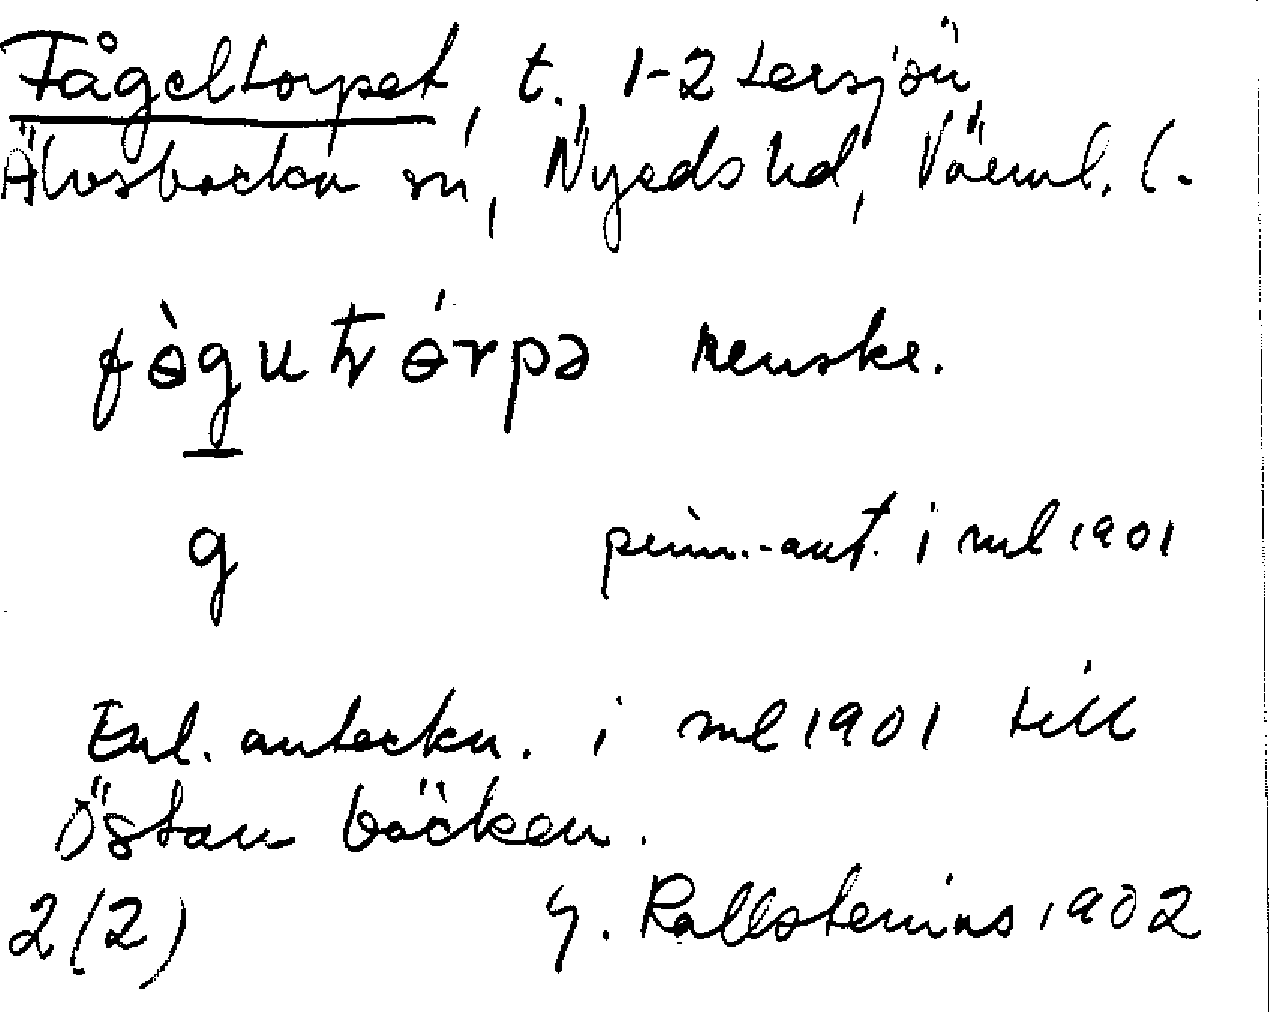 Fågeltorpet, t. 1-2 Lersjön,
Älvsbacka sn, Nyeds hd, Värml. l.
fɵ̀gutɵ́rpə kenske.
g pinn.-ant. i ml 1901
Enl. anteckn. i ml 1901 till
Östan bäcken.
2(2) G. Kallstenius 1902